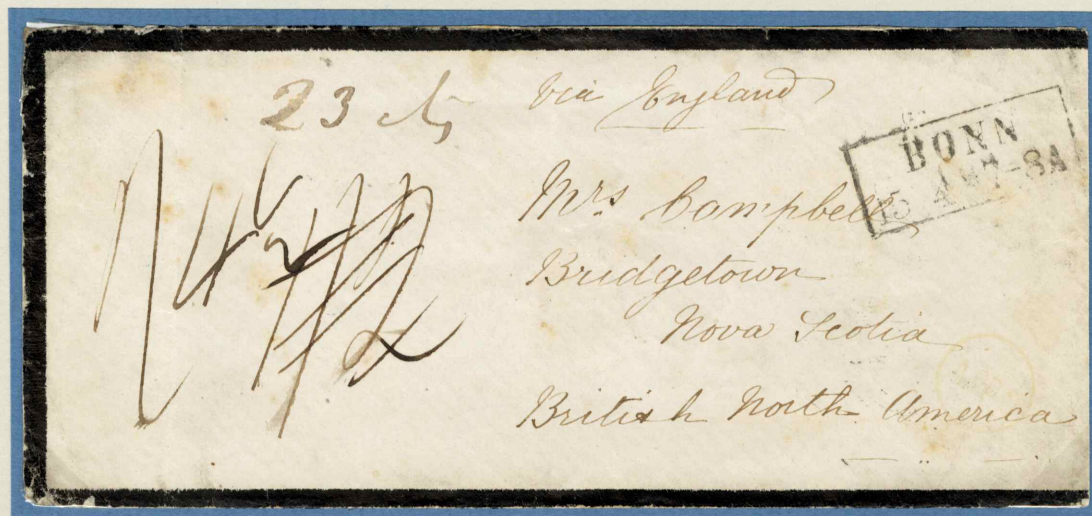 23 cts
via England
BONN
15 4 7-8A
Mrs Campbell
Bridgetown
Nova Scotia
British North America